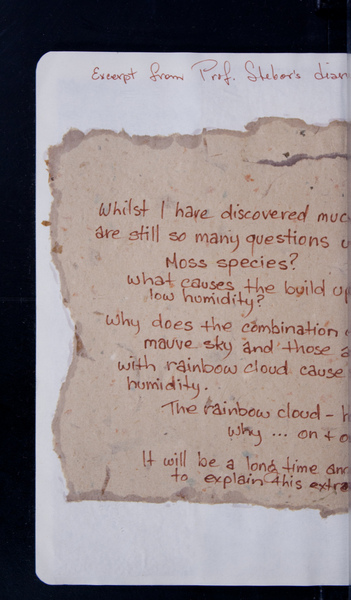 Excerpt from Prof. Stebor's
Whilst I have discovered
are still so many questions
Moss species?
What causes the build up
low humidity?
Why does the combination
mauve sky and those
with rainbow cloud cause
humidity.
The rainbow cloud -
Why ... on +
It will be a long time
to explain this